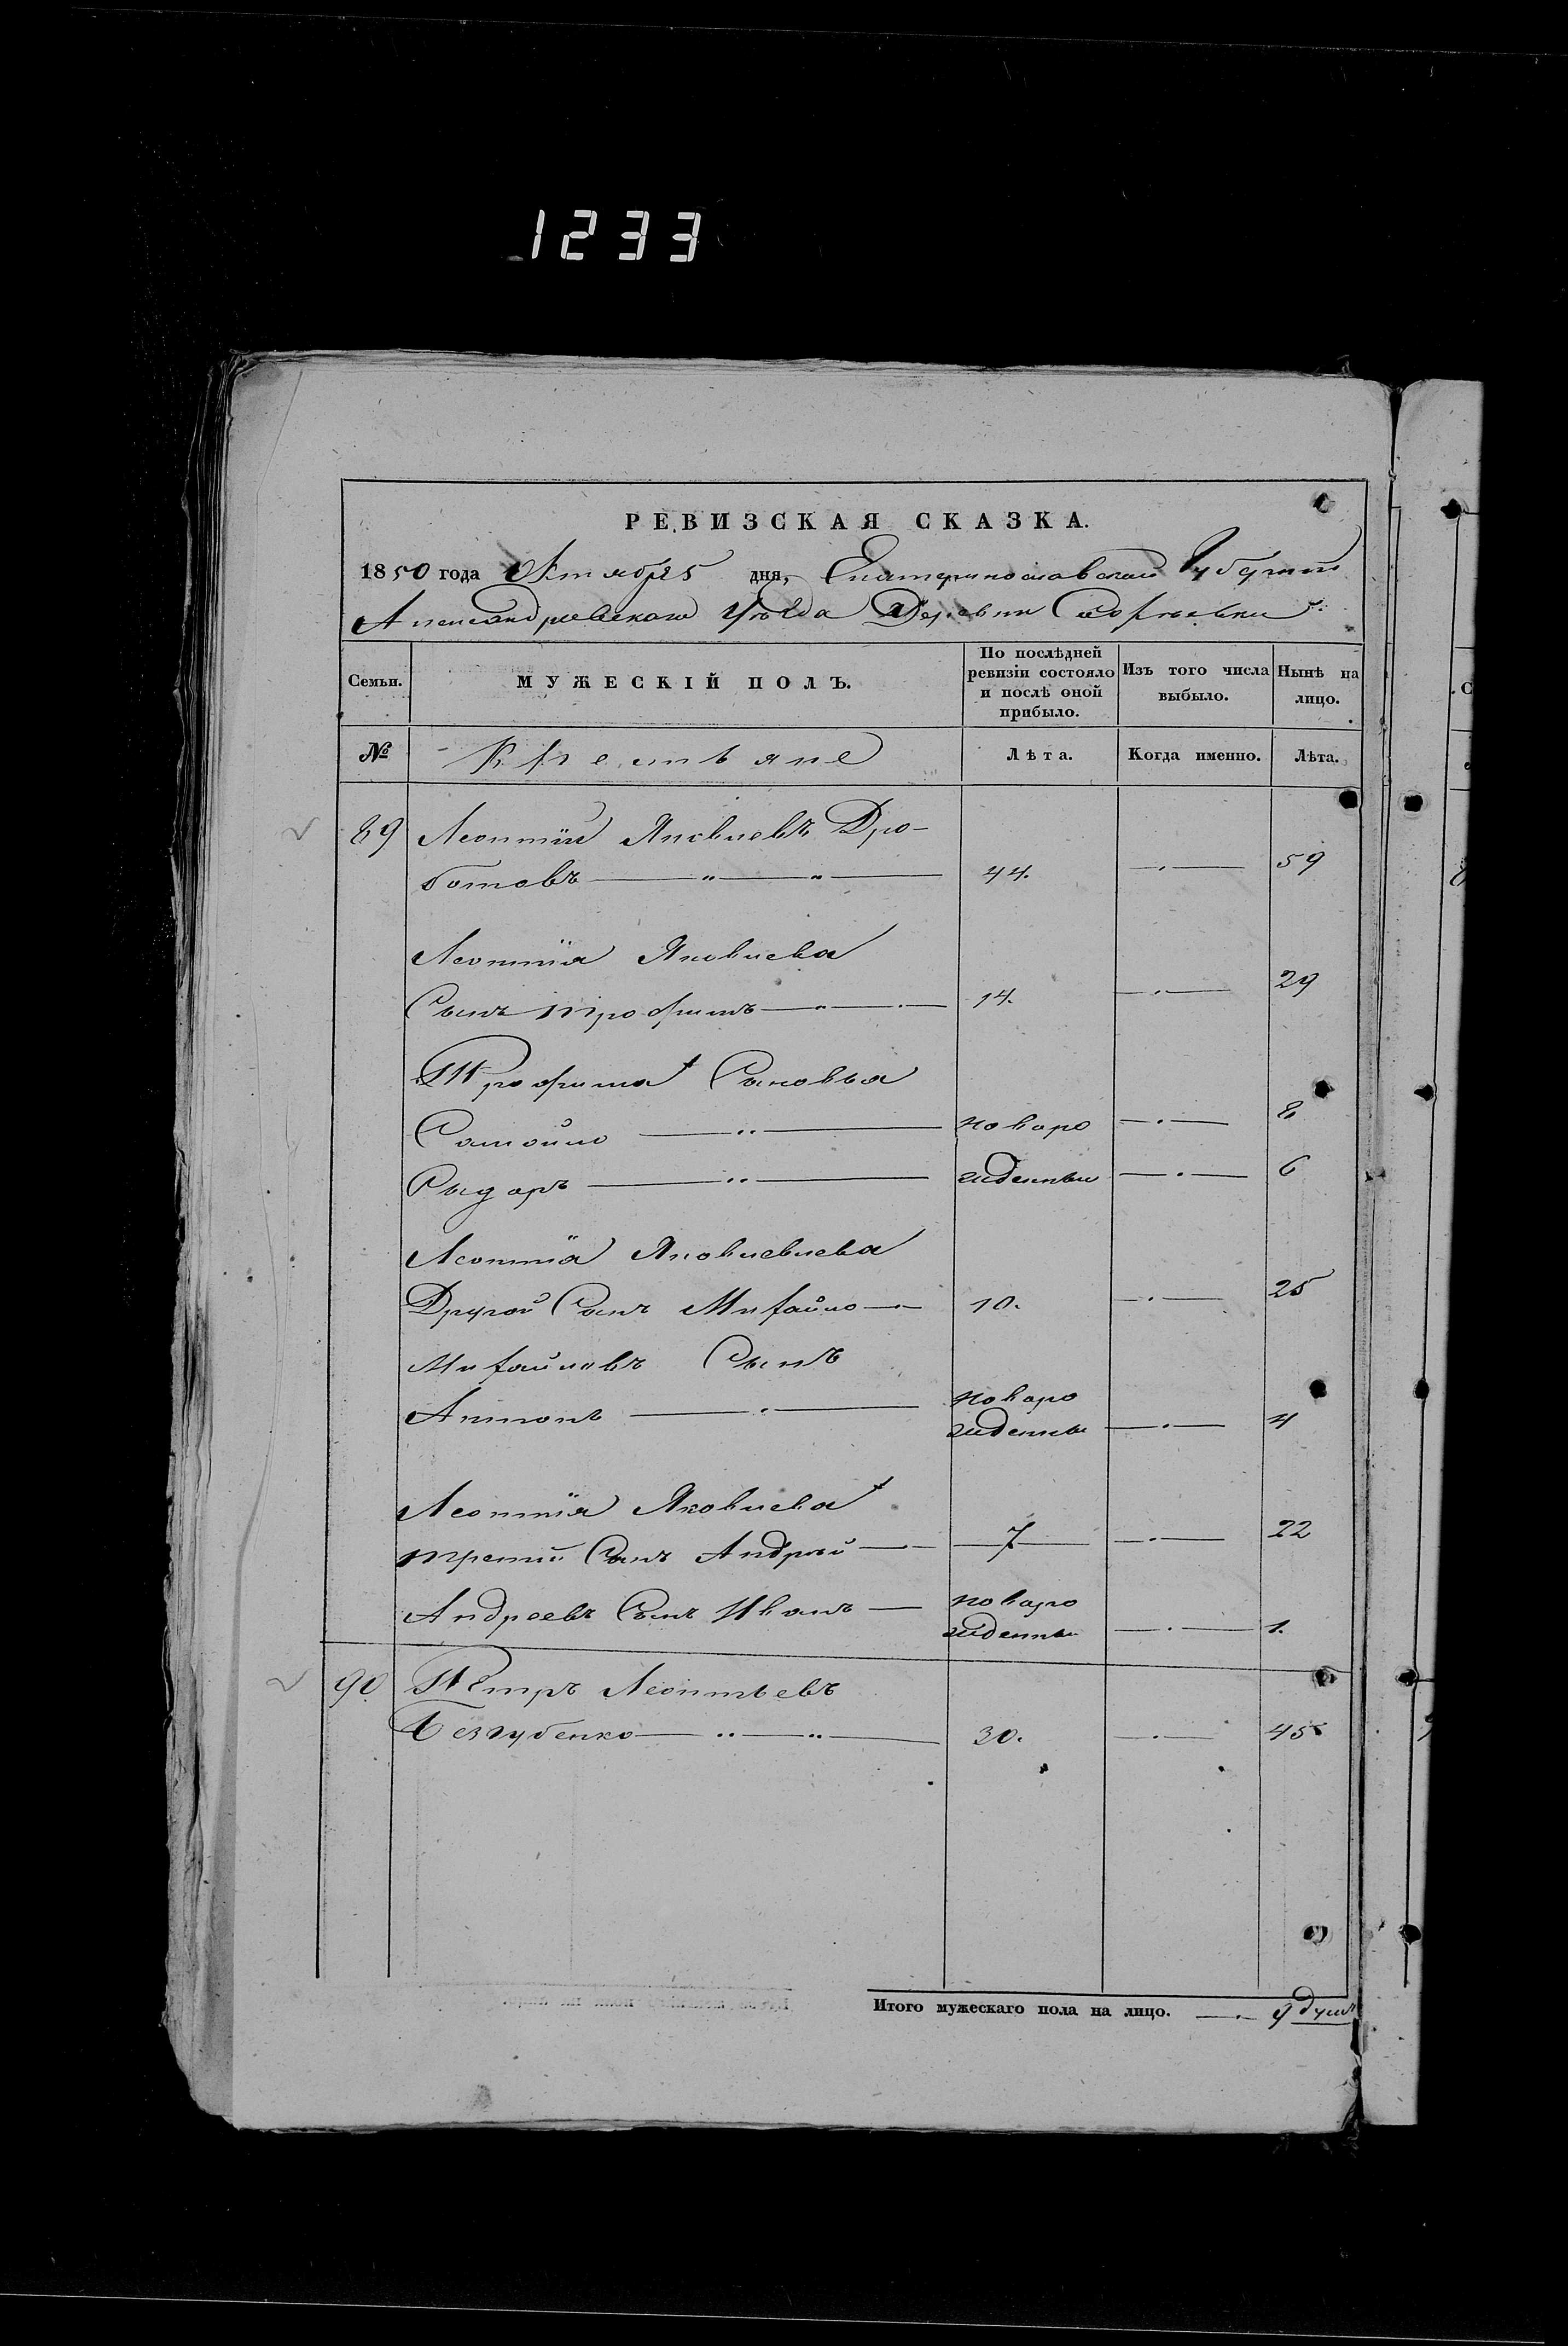 1233
РЕВИЗСКАЯ СКАЗКА.
1850 года Октября 5 дня, Екатеринославской Губерніи
Александровскаго Уѣзда Деревни
Семьи. МУЖЕСКІЙ ПОЛЪ. По послѣдней ревизіи состояло и послѣ оной прибыло. Изъ того числа выбыло. Нынѣ на лицо.
№ Крестьяне Лѣта. Когда именно. Лѣта.
89 Леонтій Яковлевъ Дро-
ботовъ 44. 59
Леонтія Яковлева
Сынъ Трофимъ 14. 29
Трофима Сыновья
Самойло новоро 8
Сыдоръ жденны 6
Леонтія Яковлевлева
Другой Сынъ Михайло 10. 25
Михайловъ Сынъ
Антонъ новоро
жденны 4
Леонтія Яковлева
третій Сынъ Андрей 7 22
Андреевъ Сынъ Иванъ новоро
жденны 1.
90 Петръ Леонтьевъ
Беззубенко 30. 45
Итого мужескаго пола на лицо. 9 душъ